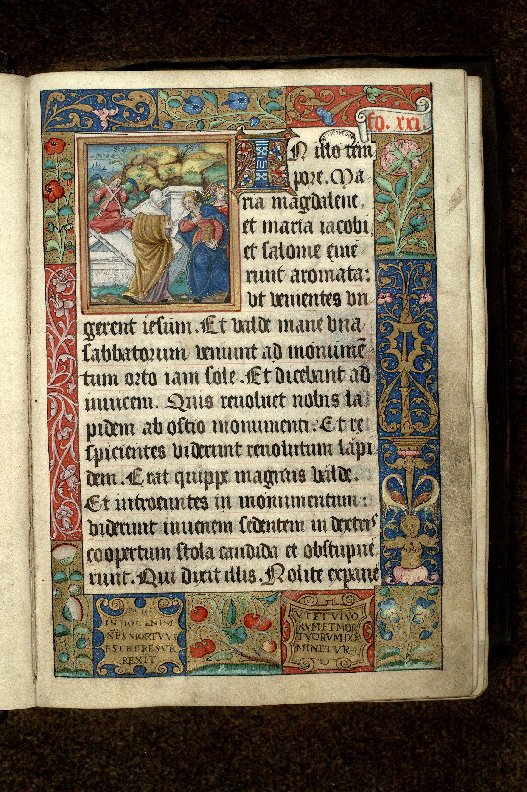 fo. xxi.
IN illo tem
pore. Ma
ria magdalene
et maria iacobi
et salome eme
runt aromata:
vt venientes vn
gerent iesum. Et valde mane vna
sabbatorum veniunt ad monumē
tum orto iam sole. Et dicebant ad
inuicem. Quis reuoluet nobis la
pidem ab ostio monumenti. Et re
spicientes viderunt reuolutum lapi
dem. Erat quippe magnus valde.
Et introeuntes in monumentum:
viderunt iuuenem sedentem in dextris
coopertum stola candida et obstupue
runt. Qui dixit illis. Nolite expaue
IN HOC ENIM
XPS MORTVVS
EST ET RESVR
REXIT
VT ET VIVO
RVM ET MOR
TVORVM DO
MINETVR